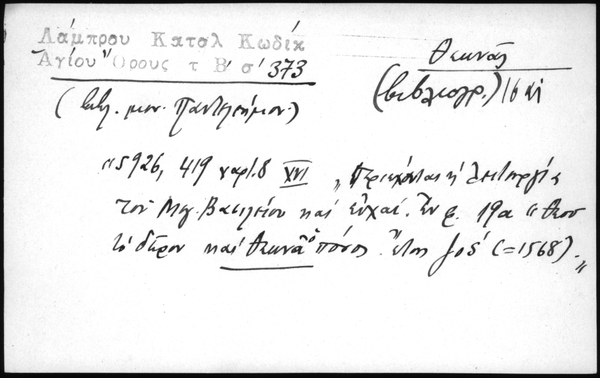 Λάμπρου Κατσλ Κωδικ
Ἁγίου Ὄρους τ Β' σ' 373
Θεκνᾶς
(βιβλιογρ.) 16 αἰ
(βιβλ. μον. Παντελεήμον.)
"5926, 419 χαρτ. 8 XVI "Περιέχονται ἡ λειτουργία
τοῦ Μεγ. Βασιλείου καὶ εὐχαί. Ἐν φ. 19α "Θεοῦ
τὸ δῶρον καὶ Θεκνᾶ ὁ πόνος. ἔτη ζοϛ' (=1568)."